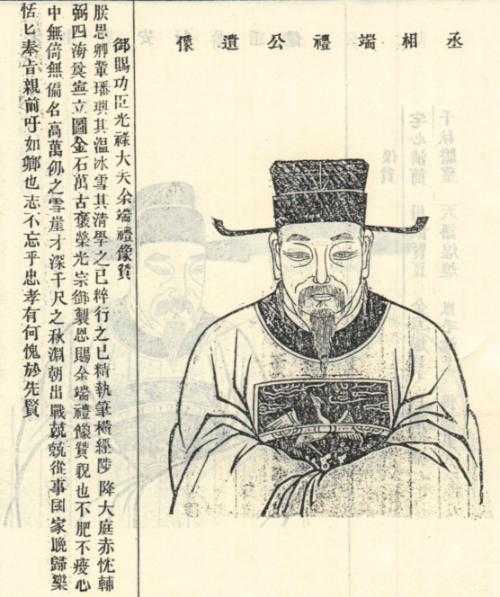 丞相端禮公遺像
御賜功臣光祿大夫余端禮像贊
朕思卿輩璠璵其溫冰雪其清學之已粹行之已精執筆橫經陟降大庭赤忱輔
弼四海奠寧立圖金石萬古褒榮光宗御製恩賜余端禮像贊視也不肥不瘦心
中無倚無偏名高萬仞之雪崖才深千尺之秋淵朝出戰兢兢從事國家晚歸樂
恬匕奉旨親前吁如卿也志不忘乎忠孝有何愧於先賢